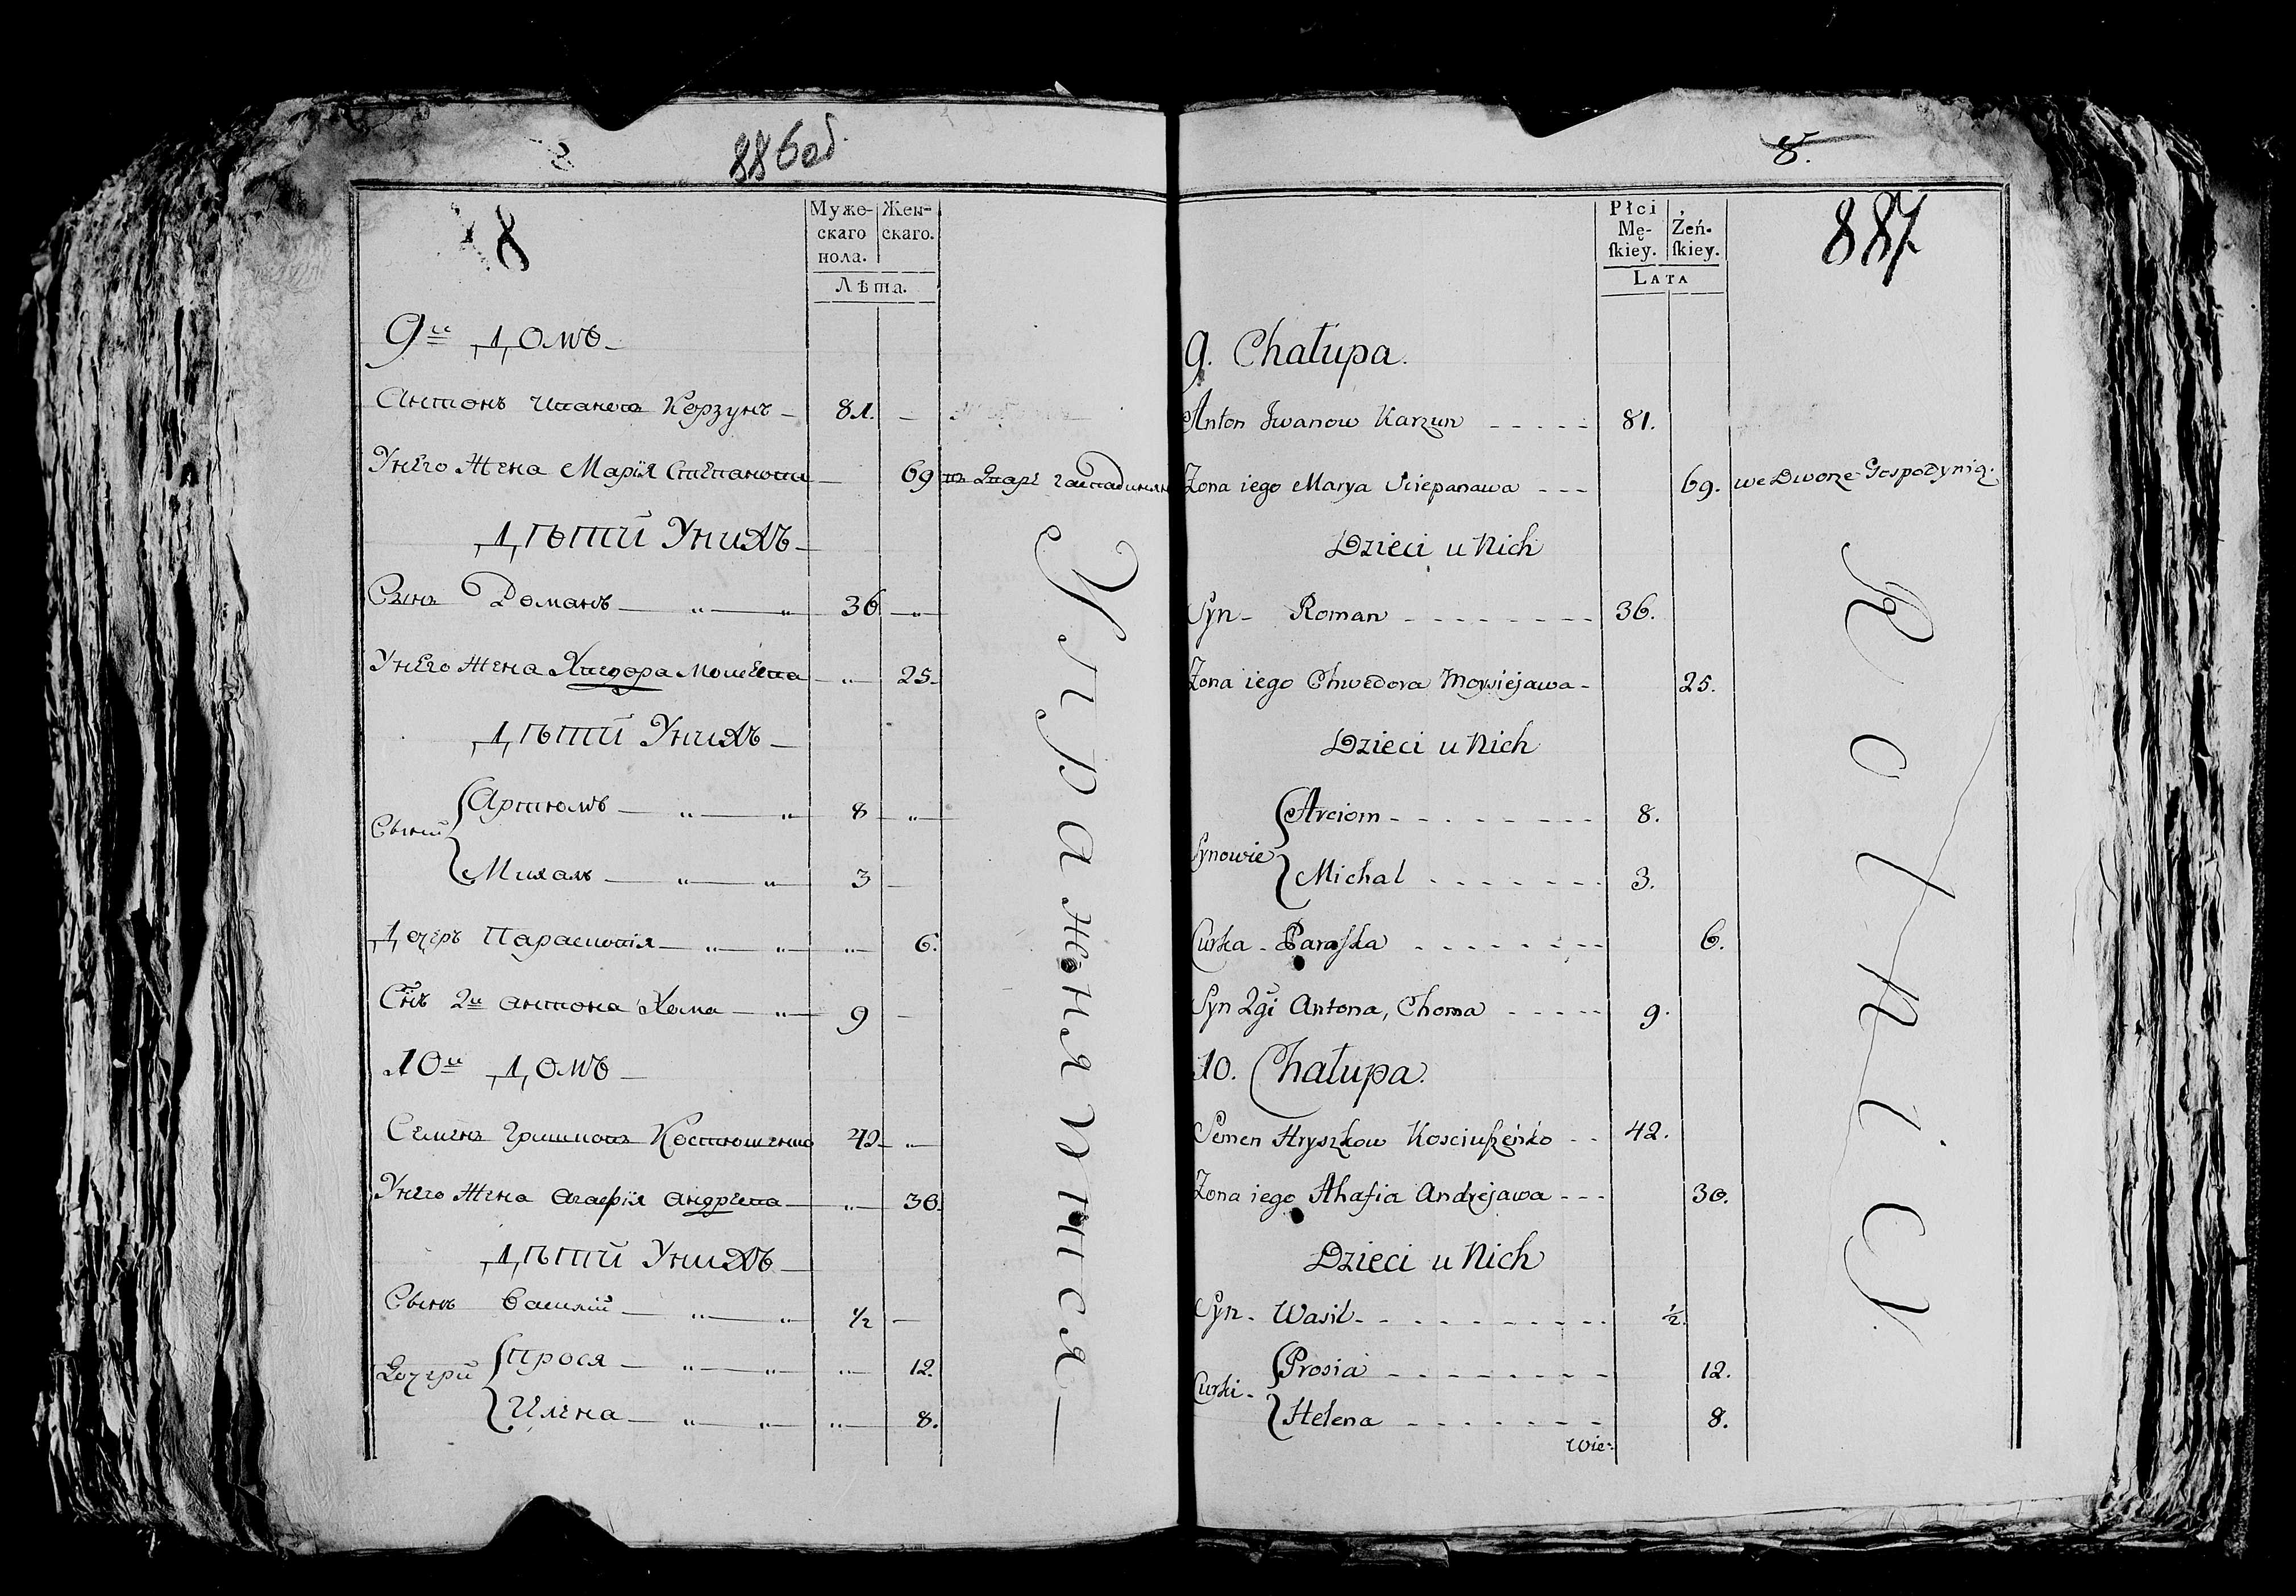 886об
8
Муже-
скаго
пола.
Жен-
скаго.
Лѣта.
9й Домъ
Антонъ Иванова Корзунъ 81.
Унего Жена Марїя Степанова 69 въ Дваре гаспадинян
Дѣти Унихъ
Сынъ Романъ 36
Унего Жена Хведора Мосеева 25.
Дѣти Унихъ
Сыни Артюмъ 8
Михалъ 3
Дочеръ Парасковїя 6.
Снъ 2й Антона Хома 9
10й Домъ
Семенъ Гришковъ Костюшенко 42
Унего Жена Агафїя Андреева 30.
Дѣти Унихъ
Сынъ Василий 1/2
Дочери Прося 12.
Илена 8.
Упражняютися
8.
887
Płci
Mę-
ſkiey.
Żeń-
ſkiey.
LATA
9. Chałupa.
Anton Jwanow Karzun 81.
Zona iego Marya Sciepanawa 69. we Dworze Gospodynią.
Dzieci u Nich
Syn Roman 36.
Zona iego Chwedora Moysiejawa 25.
Dzieci u Nich
Synowie Arciom 8.
Michal 3.
Curka Paraſka 6.
Syn 2gi Antona, Choma 9.
10. Chałupa.
Semen Hryszkow Kosciuſzeńko 42.
Zona iego Ahafia Andrejawa 30.
Dzieci u Nich
Syn Wasil 1/2.
Curki Prosia 12.
Helena 8.
Wie-
Rolnicy